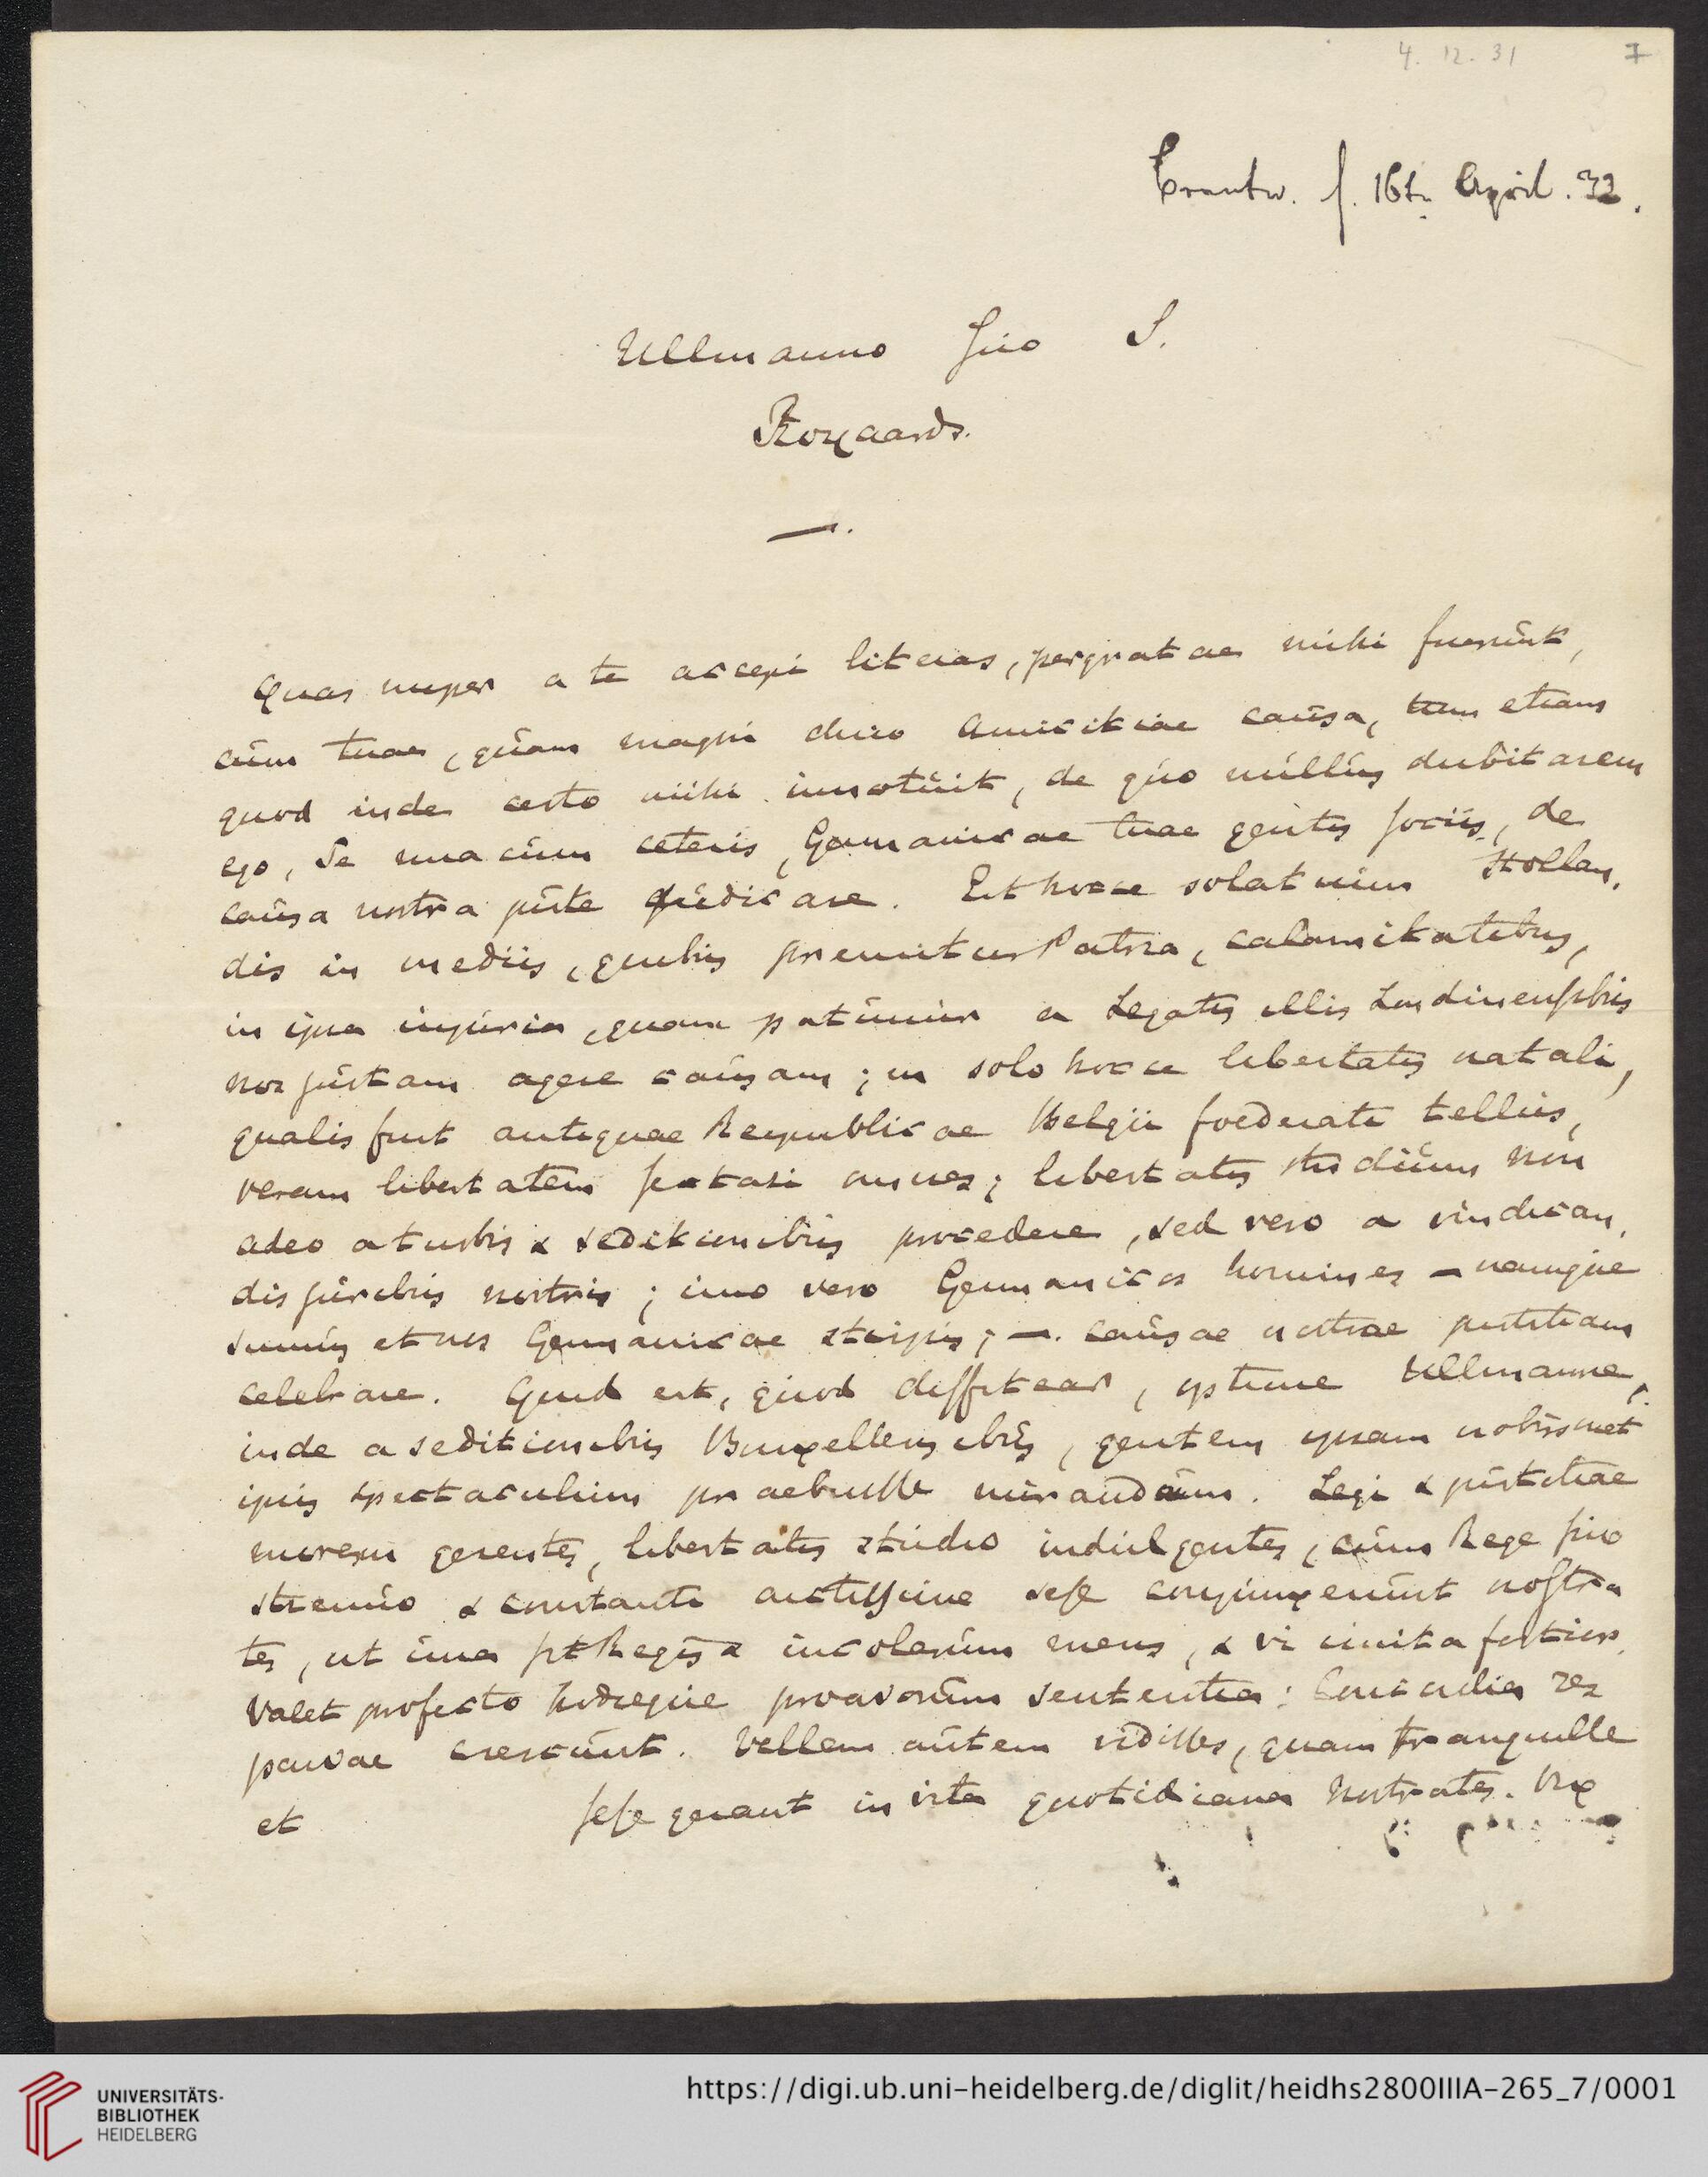 4. 12. 31
7
Erantw. d. 16tn April. 32.
Ullmanno suo S.
Royaards.
—.
Quas nuper a te accepi literas, pergratae mihi fuerunt,
cum tuae, quam magni duco amicitiae causa, tum etiam
quod inde certo mihi innotuit, de quo nullus dubitarem
ego, Te una cum ceteris, Germanicae tuae gentis sociis, de
causa nostra juste judicare. Est hocce solatium Hollan-
dis in mediis, quibus premitur Patria, calamitatibus,
in ipsa injuria, quam patimur a Legatis illis Londinensibus
nos justam agere causam; in solo hocce libertatis natali,
qualis fuit antiquae Reipublicae Belgii foederati tellus,
veram libertatem sectari omnes; libertatis studium non
adeo a turbis & seditionibus procedere, sed vero a vindican-
dis juribus nostris; imo vero Germanicos homines — namque
sumus et nos Germanicae stirpis; —. causae nostrae justitiam
celebrare. Quid est, quod diffitear, optime Ullmanne,
inde a seditionibus Bruxellensibus, gentem ipsam nobismet
ipsis spectaculum praebuisse mirandum. Legi & justitiae
morem gerentes, libertatis studio indulgentes, cum Rege suo
strenuo & constanti arctissime sese conjunxerunt nostra
tes, ut una sit Regis & incolarum mens, & vi unita fortior.
Valet profecto hodieque proavorum sententia: Concordia res
parvae crescunt. Vellem autem vidisses, quam tranquille
et sese gerant in vita quotidiana nostrates. Vix
UNIVERSITÄTS-
BIBLIOTHEK
HEIDELBERG
https://digi.ub.uni-heidelberg.de/diglit/heidhs2800IIIA-265_7/0001